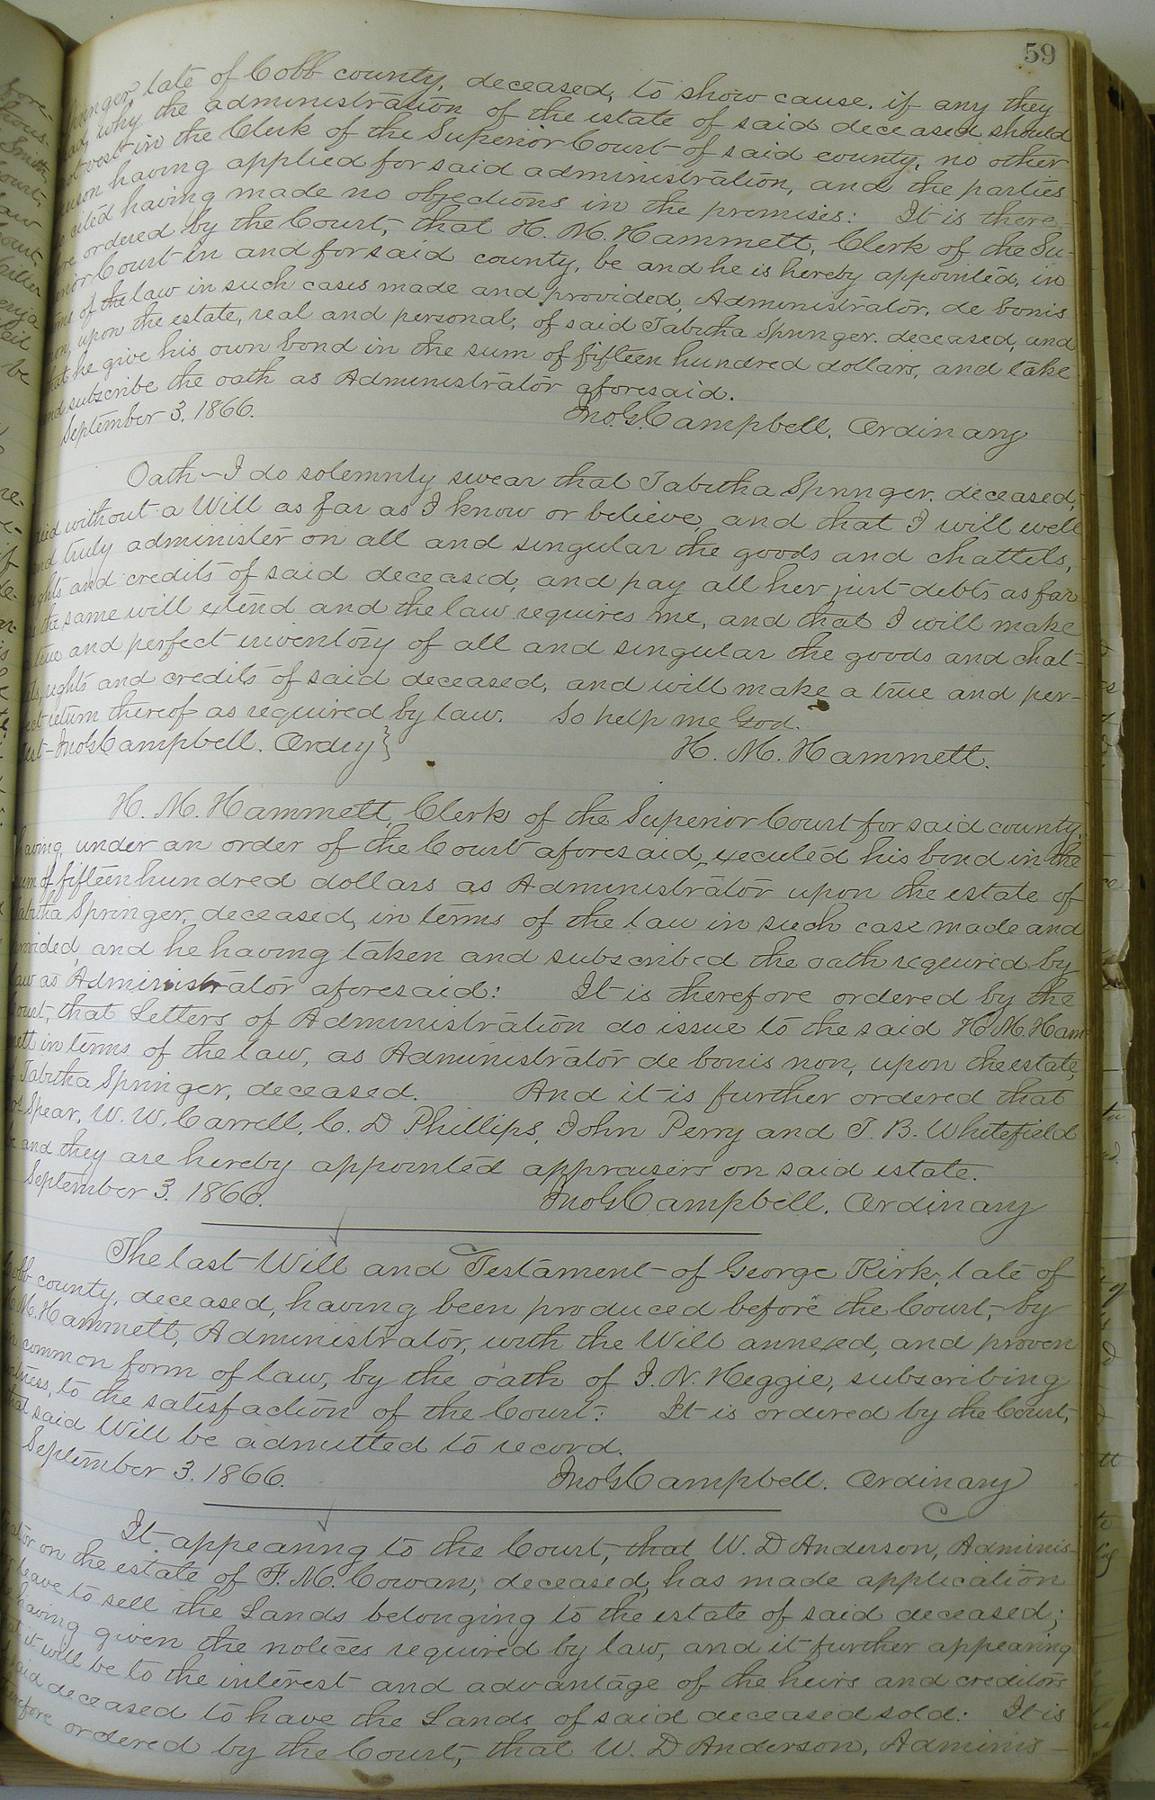 59
late of Cobb county, deceased, to show cause, if any they
why the administration of the estate of said deceased should
vest in the Clerk of the Superior Court of said county, no other
having applied for said administration, and the parties
cited having made no objections in the premises: It is there-
ordered by the Court, that H. M. Hammett, Clerk of the Su-
Court in and for said county, be and he is hereby appointed, in
of the law in such cases made and provided, Administrator, de bonis
upon the estate, real and personal, of said Tabitha Springer, deceased, and
he give his own bond in the sum of fifteen hundred dollars, and take
and subscribe the oath as Administrator aforesaid.
September 3, 1866. Jno. G. Campbell, Ordinary
Oath - I do solemnly swear that Tabitha Springer, deceased,
died without a Will as far as I know or believe, and that I will well
and truly administer on all and singular the goods and chattels,
rights and credits of said deceased, and pay all her just debts as far
the same will extend and the law requires me, and that I will make
true and perfect inventory of all and singular the goods and chat-
rights and credits of said deceased, and will make a true and per-
return thereof as required by law. So help me God.
Jno G Campbell, Ordry} H. M. Hammett.
H. M. Hammett, Clerk of the Superior Court for said county,
having under an order of the Court aforesaid, executed his bond in the
sum of fifteen hundred dollars as Administrator upon the estate of
Tabitha Springer, deceased, in terms of the law in such case made and
provided, and he having taken and subscribed the oath required by
law as Administrator aforesaid: It is therefore ordered by the
Court, that Letters of Administration do issue to the said H. M. Ham-
mett in terms of the law, as Administrator de bonis non, upon the estate
Tabitha Springer, deceased. And it is further ordered that
Spear, W. W. Carrell, C. D Phillips, John Perry and T. B. Whitefield
and they are hereby appointed appraisers on said estate.
September 3, 1866. Jno G Campbell, Ordinary
The last Will and Testament of George Kirk, late of
Cobb county, deceased, having been produced before the Court, by
H. M. Hammett, Administrator, with the Will annexed, and proven
common form of law, by the oath of J. N. Heggie, subscribing
witness, to the satisfaction of the Court: It is ordered by the Court,
that said Will be admitted to record.
September 3, 1866. Jno G Campbell, Ordinary
It appearing to the Court, that W. D Anderson, Adminis-
on the estate of F. M. Cowan, deceased, has made application
leave to sell the Lands belonging to the estate of said deceased;
having given the notices required by law, and it further appearing
it will be to the interest and advantage of the heirs and creditors
said deceased to have the Lands of said deceased sold: It is
therefore ordered by the Court, that W. D Anderson, Adminis-